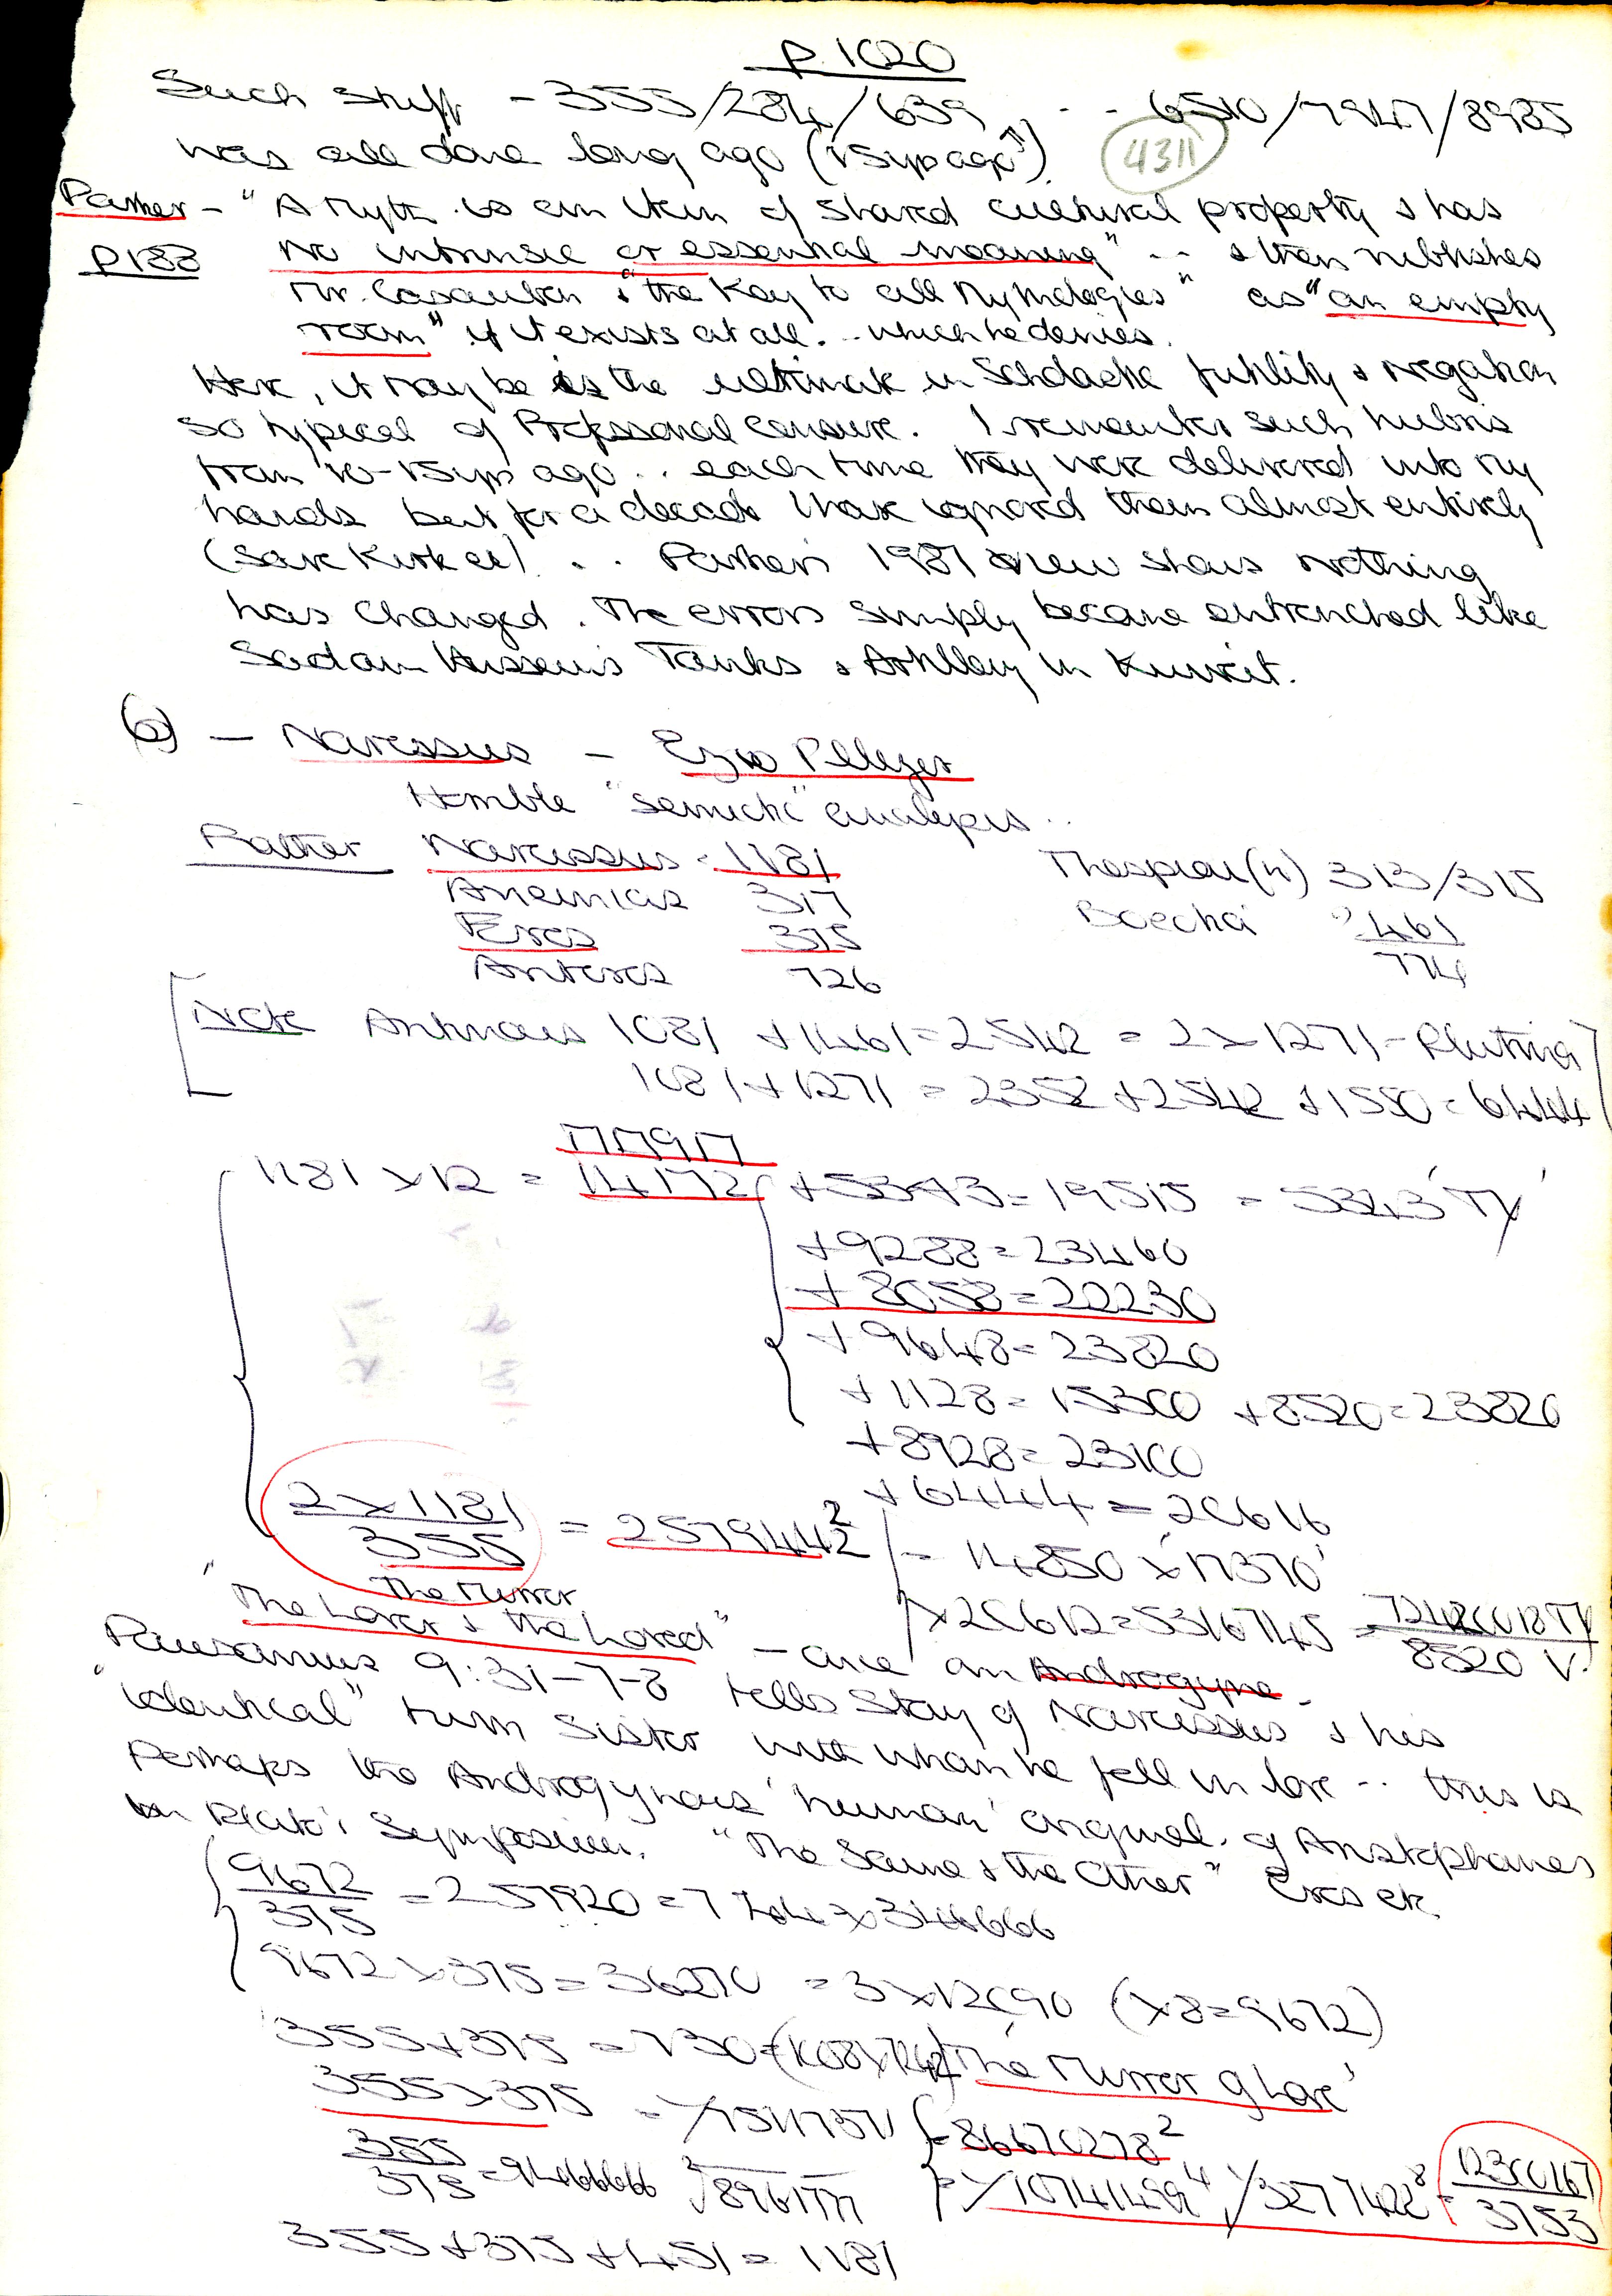 P. 1020
Such stuff - 355/284/639 - - 6510/7947/8985
was all done long ago (15yrs ago↑). 4311
Parker - "A Myth is an item of shared cultural property & has
P188 no intrinsic or essential meaning" .. & then rubbishes
Mr. Casaubon & "the Key to all Mythologies" as "an empty
room" if it exists at all. .. which he denies.
Here, it may be is the ultimate in Scholastic futility & negation
so typical of Professonal censure. I remember such hubris
from 10-15yrs ago .. each time they were delivered into my
hands but for a decade I have ignored them almost entirely
(save Kirk etc) . . Parker's 1987 view shows nothing
has changed. The errors simply became entrenched like
Sadam Hussein's Tanks & Artillery in Kuwait.
(6) - Narcissus - Ezio Pellizer
Horrible "semiotic" analysis ..
Rather Narcissus = 1181 Thespiai(n) 313/315
Ameinias 317 Boeotia 461
Eros 375 774
Anteros 726
[Note Antinous 1081 + 1461 = 2542 = 2 x 1271 -
1081 + 1271 = 2352 + 2542 + 1550 = 6444]
1181 x 12 = 14172 + 5343 = 19515 = 5343
+ 9288 = 23460
+ 8058 = 22230
+ 9648 = 23820
+ 1128 = 15300 + 8520 = 23820
+ 8928 = 23100
+ 6444 = 20616
2 x 1181 / 355 = 2579442² = 14850 x 17370
The Mirror
x 20612 = 5316745 = 8520 V.
"The Lover & the Loved" - are an Androgyne -
Pausanius 9:31-7-8 tells story of Narcissus & his
"identical" twin sister with whom he fell in love .. this is
perhaps the Androgynous 'human' original of Aristophanes
in Plato's Symposium. "The Same & the Other" Eros etc
9672/375 = 257920 = 744 x 346666
9672 x 375 = 36270 = 3 x 12090 (x 8 = 9672)
355 + 375 = 730 'The Mirror of Love'
355 x 375 = 1/7511737 = 86670278²
355/375 = 9466666 1/10741499⁴ 1/3277422⁸ = 12300167/3753
355 + 375 + 451 = 1181